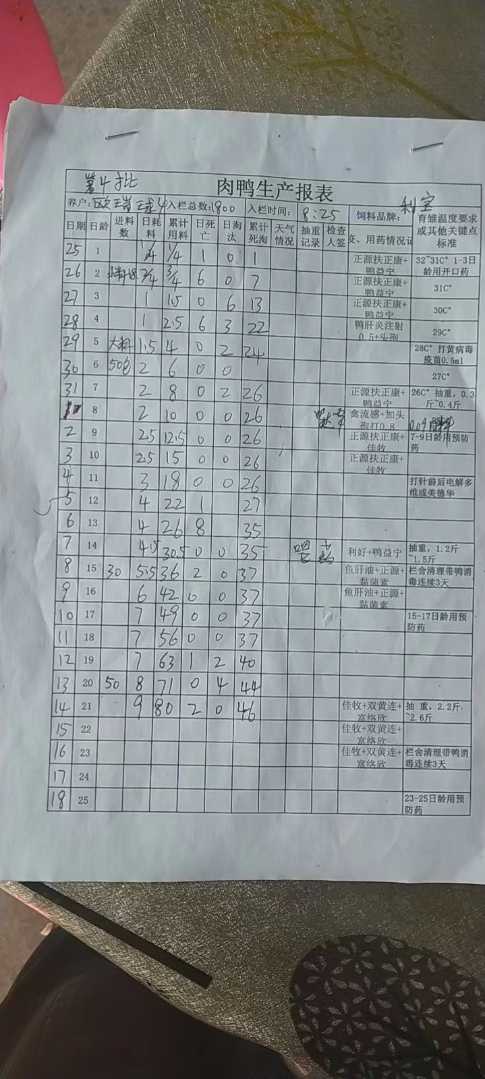 第4批
肉鸭生产报表
养户: 入栏总数:1800 入栏时间: 8:25 饲料品牌: 育雏温度要求或其他关键点标准
日期 日龄 进料数 日耗料 累计用料 日死亡 日淘汰 累计死淘 天气情况 抽重记录 检查人签 疫、用药情况记
25 1 1/4 1/4 1 0 1 正源扶正康+鸭益宁 32~31C° 1-3日龄用开口药
26 2 3/4 6 0 7 正源扶正康+鸭益宁 31C°
27 3 1 1.5 0 6 13 正源扶正康+鸭益宁 30C°
28 4 1 2.5 6 3 22 鸭肝炎注射0.5+头孢 29C°
29 5 大料 1.5 4 0 2 24 28C° 打黄病毒疫苗0.5ml
30 6 50包 2 6 0 0 27C°
31 7 2 8 0 2 26 正源扶正康+鸭益宁 26C° 抽重,0.3斤~0.4斤
8 2 10 0 0 26 禽流感+加头孢打0.8
2 9 2.5 12.5 0 0 26 正源扶正康+佳牧 7-9日龄用预防药
3 10 2.5 15 0 0 26 正源扶正康+佳牧
4 11 3 18 0 0 26 打针前后电解多维或美德华
5 12 4 22 1 27
6 13 4 26 8 35
7 14 4.5 30.5 0 0 35 利好+鸭益宁 抽重,1.2斤~1.5斤
8 15 30 5.5 36 2 0 37 鱼肝油+正源+黏菌素 栏舍清理带鸭消毒连续3天
9 16 6 42 0 0 37 鱼肝油+正源+黏菌素
10 17 7 49 0 0 37 15-17日龄用预防药
11 18 7 56 0 0 37
12 19 7 63 1 2 40
13 20 50 8 71 0 4 44
14 21 9 80 2 0 46 佳牧+双黄连+富络欣 抽 重,2.2斤~2.6斤
15 22 佳牧+双黄连+富络欣
16 23 佳牧+双黄连+富络欣 栏舍清理带鸭消毒连续3天
17 24
18 25 23-25日龄用预防药